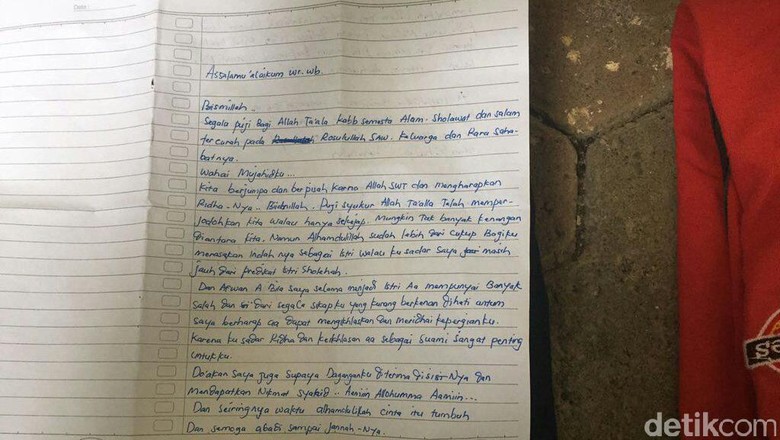 Date :
Assalamu'alaikum wr. wb.
Bismillah..
Segala puji Bagi Allah Ta'ala Rabb semesta Alam. Sholawat dan salam
tercurah pada Rosulullah SAW. Keluarga dan Para Saha-
batnya.
Wahai Mujahidku...
Kita berjumpa dan berpisah karena Allah SWT dan mengharapkan
Ridho-Nya.. Biidnillah. Puji syukur Allah Ta'alla Telah memper-
Jodohkan Kita walau hanya sekejap. Mungkin Tak banyak kenangan
diantara Kita, Namun Alhamdulillah sudah lebih dari cukup Bagiku
merasakan Indah nya sebagai Istri walau ku sadar saya masih
jauh dari predikat Istri Sholehah.
Dan Afwan A. Bila saya selama menjadi Istri Aa mempunyai Banyak
Salah dan dari segala sikapku yang kurang berkenan dihati antum
Saya berharap aa dapat mengikhlaskan dan meridhai kepergianku.
Karena ku sadar Ridha dan keikhlasan aa sebagai suami sangat penting
untukku.
Do'akan saya juga supaya Daganganku diterima disisi-Nya dan
Mendapatkan Nikmat syahid.. Aamiin Allohumma Aamiin...
Dan seiringnya waktu alhamdulillah cinta itu tumbuh
Dan semoga abadi sampai Jannah-Nya.
detikcom